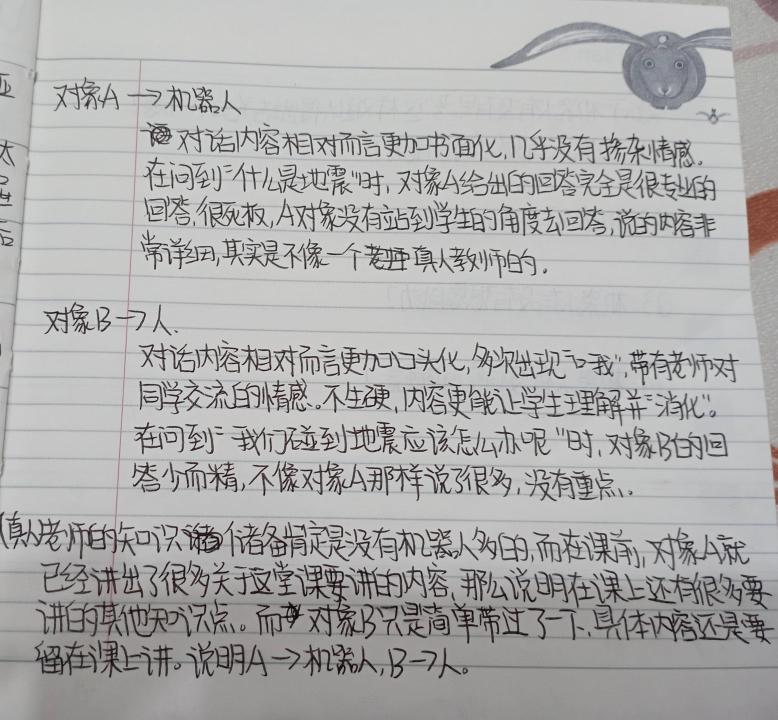 对象A→机器人
对话内容相对而言更加书面化,几乎没有掺杂情感。
在问到“什么是地震”时,对象A给出的回答完全是很专业的
回答,很死板,A对象没有站到学生的角度去回答,说的内容非
常详细,其实是不像一个真人教师的。
对象B→人.
对话内容相对而言更加口头化,多次出现“我”,带有老师对
同学交流的情感。不生硬,内容更能让学生理解并“消化”。
在问到“我们碰到地震应该怎么办呢”时,对象B的回
答少而精,不像对象A那样说了很多,没有重点。
(真人)老师的知识储备肯定是没有机器人多的,而在课前,对象A就
已经讲出了很多关于这堂课要讲的内容,那么说明在课上还有很多要
讲的其他知识点。而对象B只是简单带过了一下,具体内容还是要
留在课上讲。说明A→机器人,B→人。